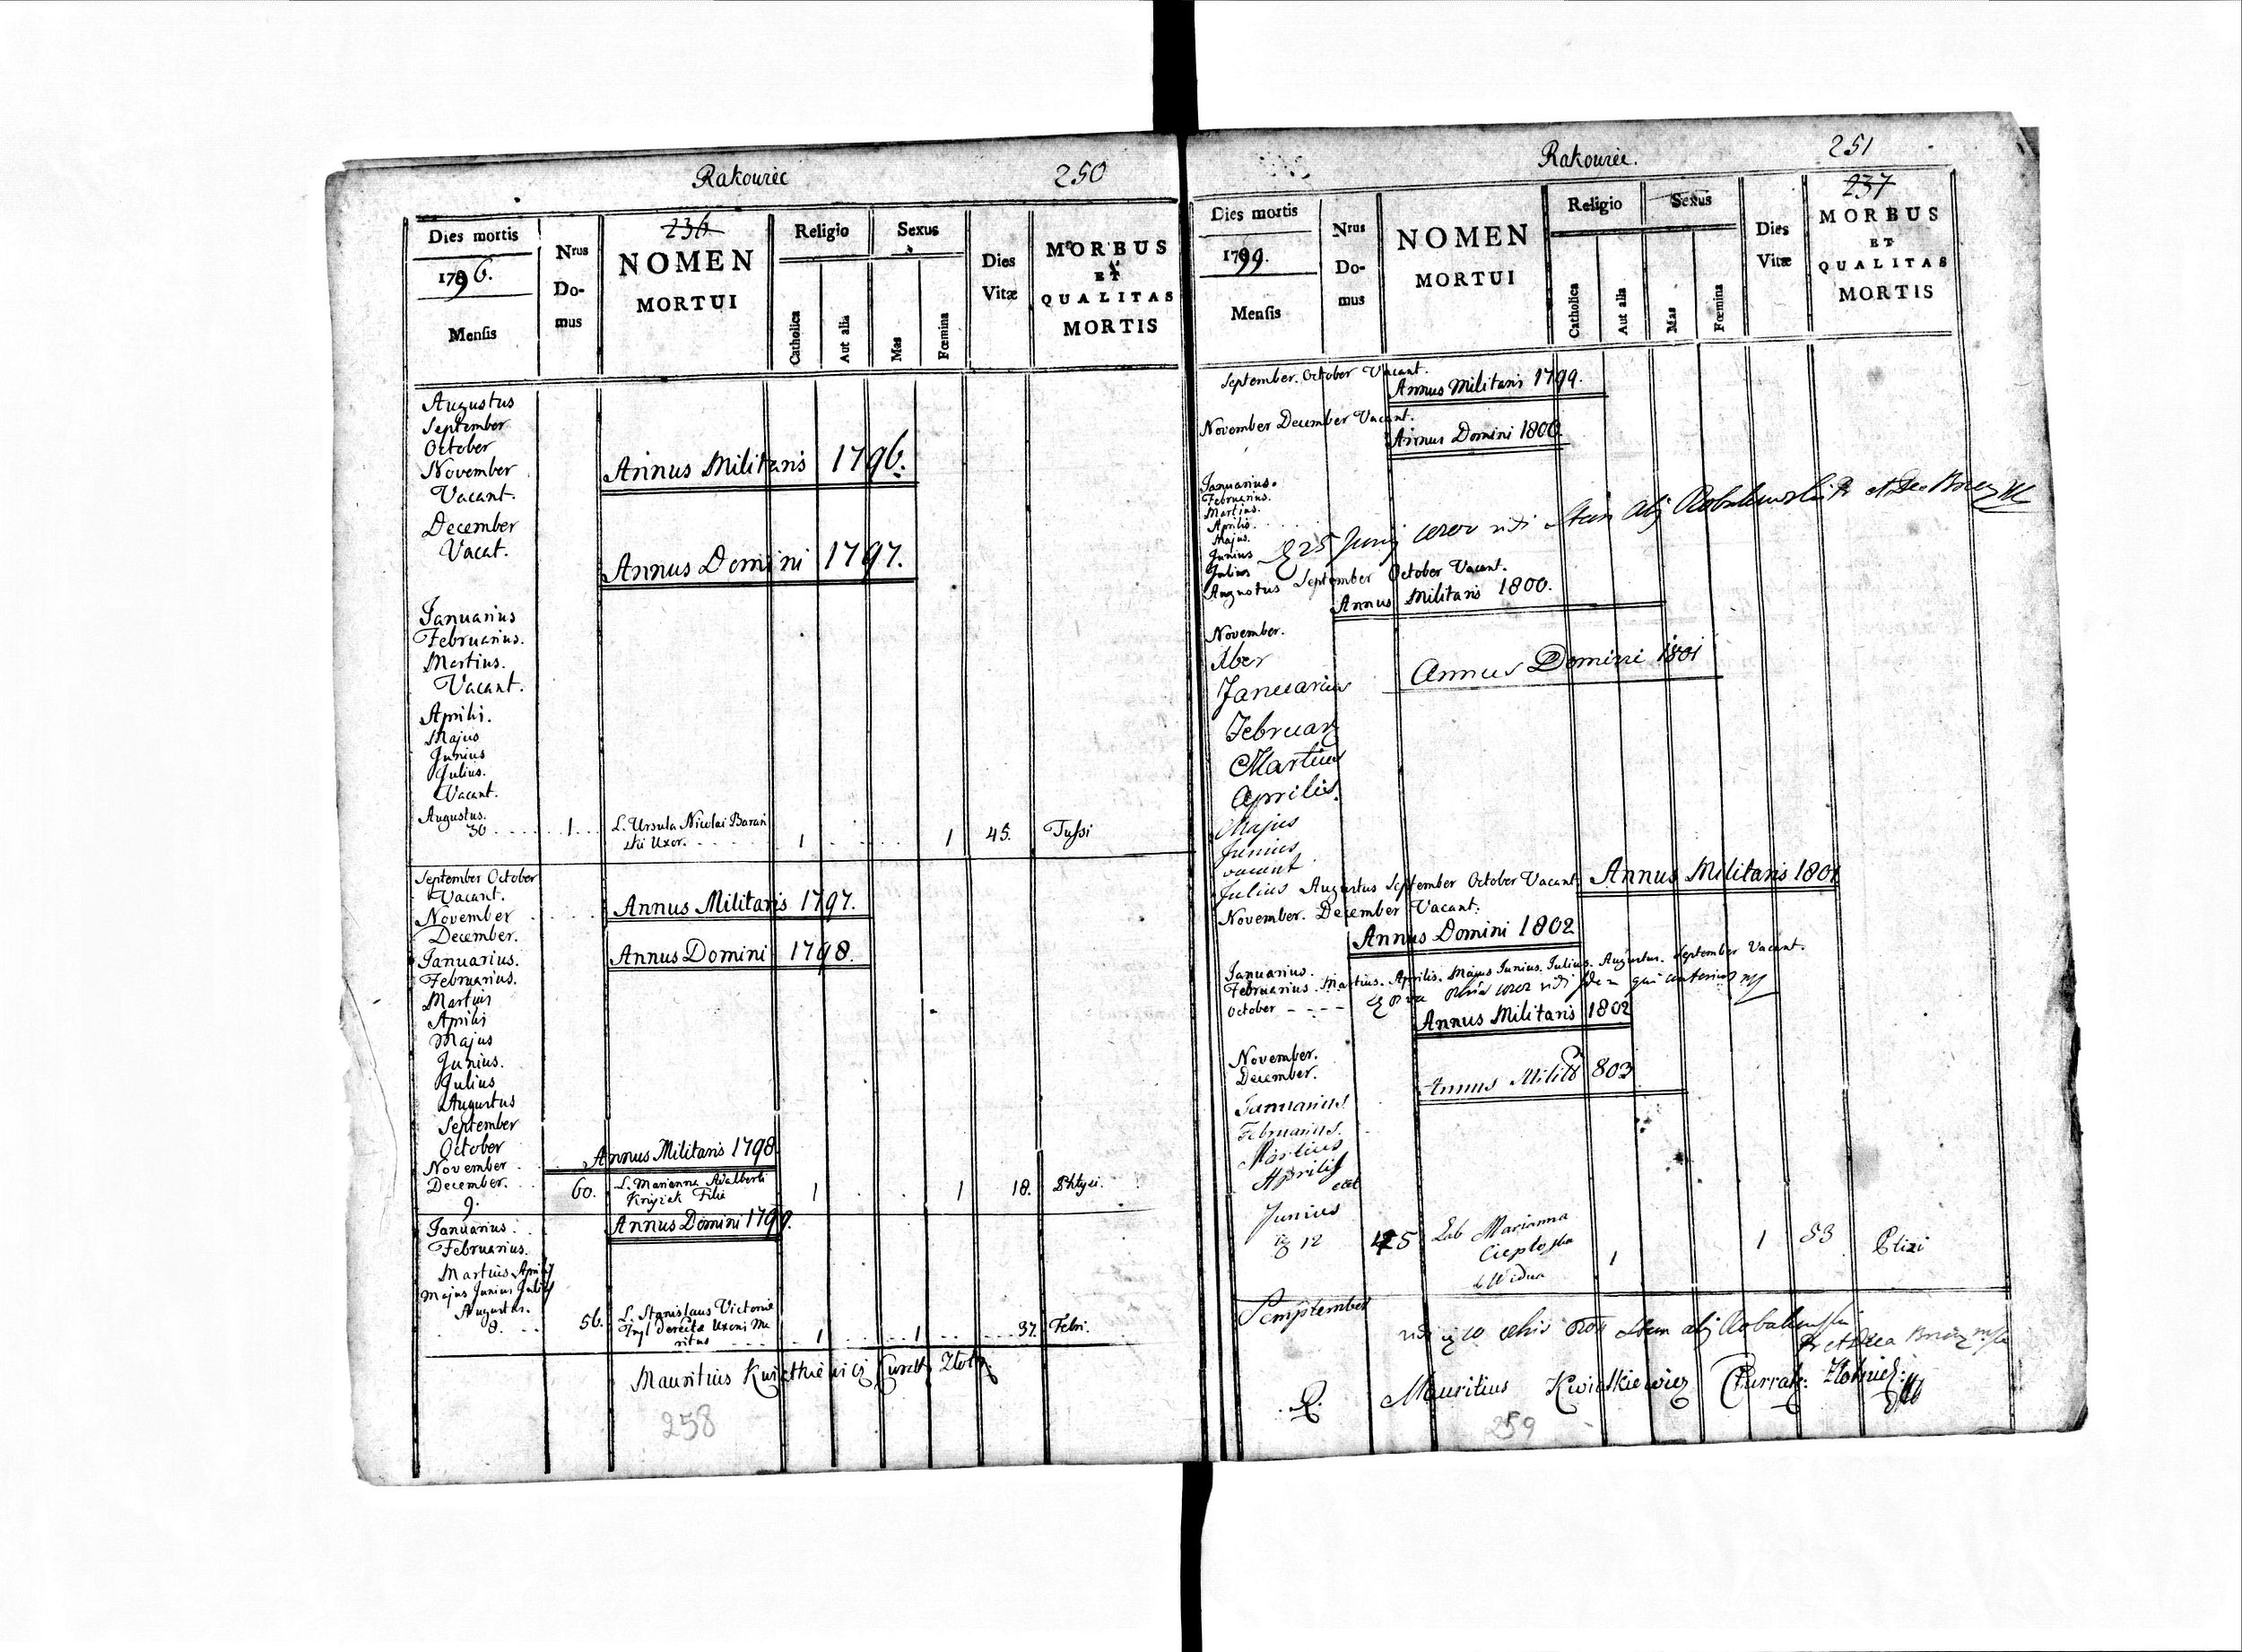 Rakowiec 250
236
Dies mortis
1796.
Mensis
Nrus
Do-
mus
NOMEN
MORTUI
Religio
Catholica
Aut alia
Sexus
Mas
Fœmina
Dies
Vitæ
MORBUS
ET
QUALITAS
MORTIS
Augustus
September
October
November
Vacant.
Annus Militaris 1796.
December
Vacat.
Annus Domini 1797.
Januarius
Februarius.
Martius.
Vacant.
Aprilis.
Majus
Junius
Julius.
Vacant.
Augustus.
30 . . . . 1 . . . L. Ursula Nicolai Barań
ski Uxor. . . . . 1 . . . . 1 45. Tussi
September October
Vacant.
November
Annus Militaris 1797.
December.
Annus Domini 1798.
Januarius.
Februarius.
Martius
Aprilis
Majus
Junius.
Julius
Augustus
September
October
Annus Militaris 1798
November
December.
9. 60. L. Marianna Adalberti
Krzyżek Filia 1 . . 1 18. Phtysi.
Annus Domini 1799.
Januarius.
Februarius.
Martius Aprilis
Majus Junius Julius
Augustus.
8. . . 56. L. Stanislaus Victoriæ
derelictæ Uxoris Ma
ritus . . . 1 . . 1 . . . 37. Febri.
Mauritius Kwiatkiewicz Curat
258
Rakowiec. 251
237
Dies mortis
1799.
Mensis
Nrus
Do-
mus
NOMEN
MORTUI
Religio
Catholica
Aut alia
Sexus
Mas
Fœmina
Dies
Vitæ
MORBUS
ET
QUALITAS
MORTIS
September. October Vacant.
Annus Militaris 1799.
November December Vacant.
Annus Domini 1800.
Januarius.
Februarius.
Martius.
Aprilis.
Majus.
Junius
25 Junij
Julius
Augustus September October Vacant.
Annus Militaris 1800.
November.
Xber
Annus Domini 1801
Januarius
Februarij
Martius
Aprilis
Majus
Junius
vacant
Julius Augustus September October Vacant. Annus Militaris 1801
November. December Vacant.
Annus Domini 1802
Januarius.
Februarius. Martius. Aprilis. Majus Junius. Julius. Augustus. September Vacant.
October - - - -
Annus Militaris 1802
November.
December.
Annus 803
Januarius
Februarius.
Martius
Aprilis
Junius
12 Marianna
Ciepłoska
Widua 1 1 53
Semptember
Mauritius Kwiatkiewicz Currat:
259